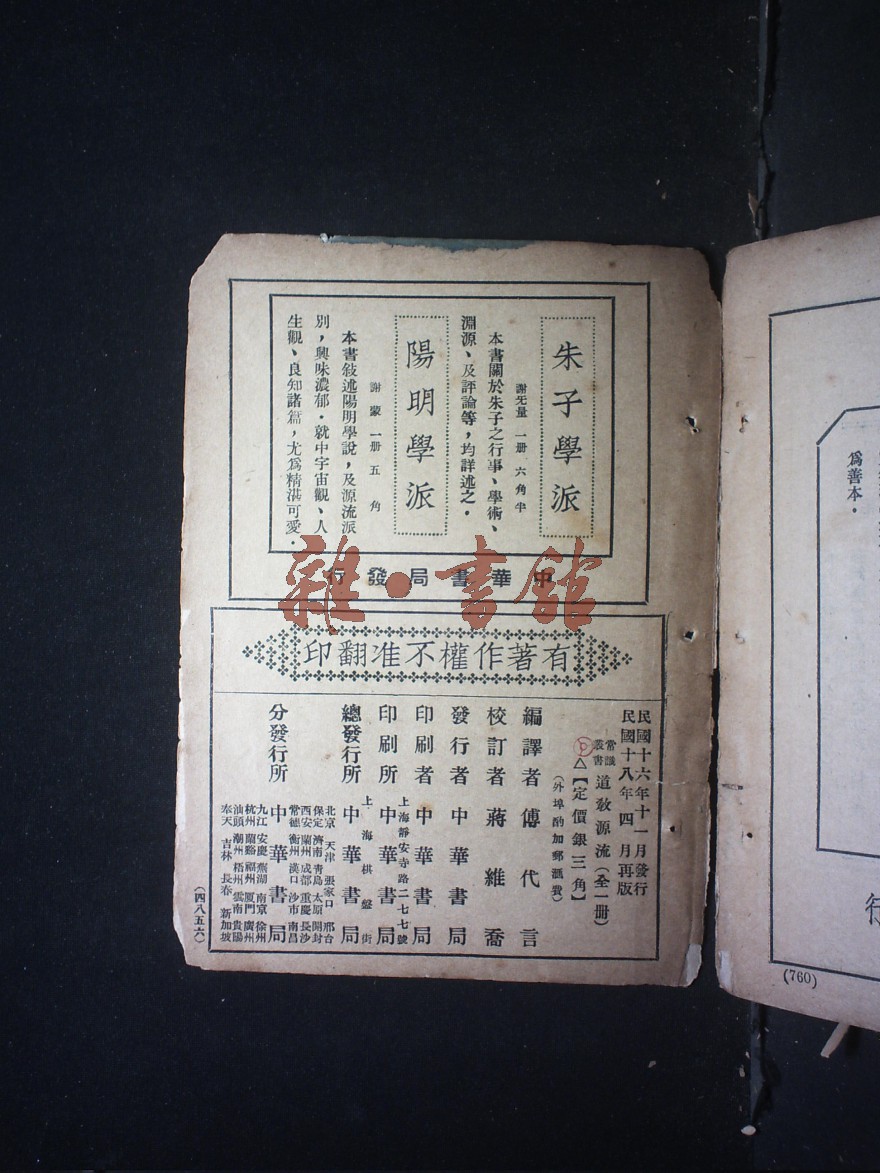 朱子學派
謝无量 一册 六角半
本書關於朱子之行事、學術、
淵源、及評論等，均詳述之．
陽明學派
謝蒙 一册 五角
本書敍述陽明學說，及源流派
別，興味濃郁．就中宇宙觀、人
生觀、良知諸篇，尤爲精湛可愛．
中華書局發行
雜·書館
有著作權不准翻印
民國十六年十一月發行
民國十八年四月再版
常識叢書 道教源流（全一册）
△【定價銀三角】
（外埠酌加郵滙費）
編譯者 傅代言
校訂者 蔣維喬
發行者 中華書局
印刷者 中華書局
上海靜安寺路二七七號
印刷所 中華書局
上海棋盤街
總發行所 中華書局
分發行所 中華書局
北京 天津 張家口 邢台
保定 濟南 青島 太原 開封
西安 蘭州 成都 重慶 長沙
常德 衡州 漢口 沙市 南昌
九江 安慶 蕪湖 南京 徐州
杭州 蘭谿 福州 厦門 廣州
汕頭 潮州 梧州 雲南 貴陽
奉天 吉林 長春 新加坡
（四八五六）
爲善本．
行
(760)